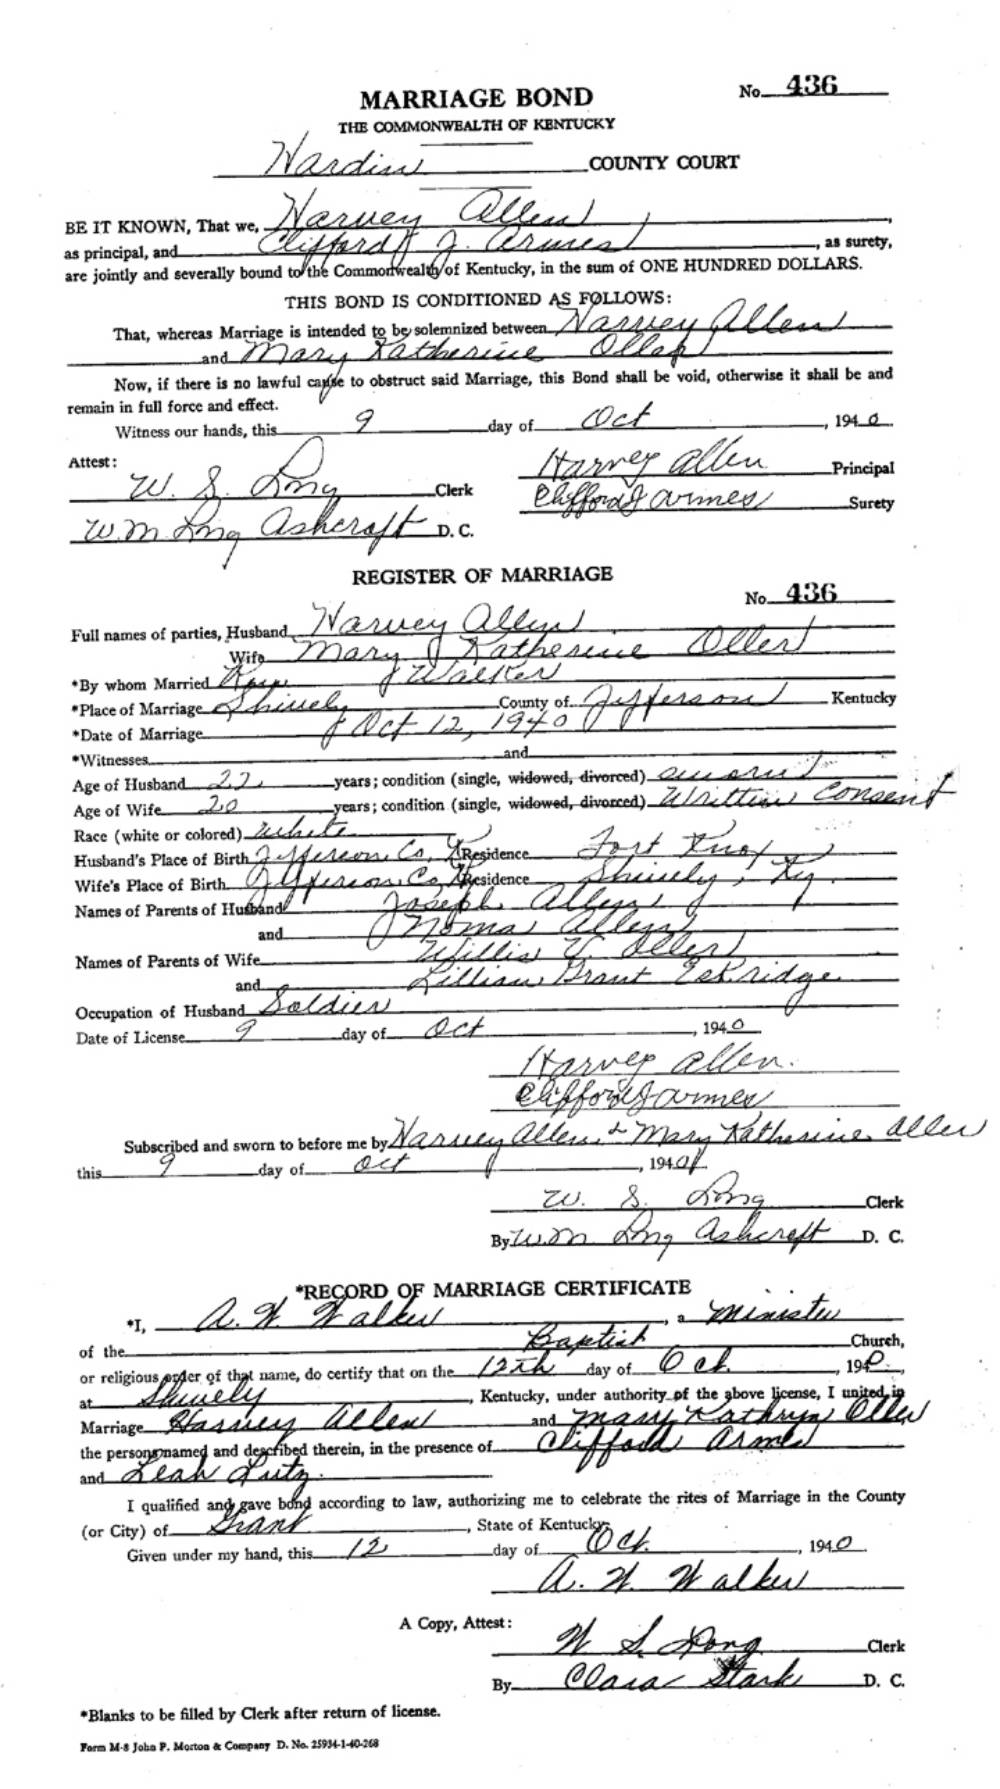 No. 436
MARRIAGE BOND
THE COMMONWEALTH OF KENTUCKY
Hardin COUNTY COURT
BE IT KNOWN, That we, Harvey Allen,
as principal, and Clifford J. Armes, as surety,
are jointly and severally bound to the Commonwealth of Kentucky, in the sum of ONE HUNDRED DOLLARS.
THIS BOND IS CONDITIONED AS FOLLOWS:
That, whereas Marriage is intended to be solemnized between Harvey Allen
and Mary Katherine Oller
Now, if there is no lawful cause to obstruct said Marriage, this Bond shall be void, otherwise it shall be and
remain in full force and effect.
Witness our hands, this 9 day of Oct, 1940.
Attest:
Harvey Allen Principal
W. S. Long Clerk
Clifford J Armes Surety
W.M. Long Ashcraft D. C.
REGISTER OF MARRIAGE
No. 436
Full names of parties, Husband Harvey Allen
Wife Mary Katherine Oller
*By whom Married Walker
*Place of Marriage Shively County of Jefferson Kentucky
*Date of Marriage Oct 12, 1940
*Witnesses and
Age of Husband 22 years; condition (single, widowed, divorced)
Age of Wife 20 years; condition (single, widowed, divorced) Written Consent
Race (white or colored) White
Husband's Place of Birth Jefferson Co, Residence Fort Knox
Wife's Place of Birth Jefferson Co, Residence Shively, Ky.
Names of Parents of Husband Joseph Allen
and Noma Allen
Names of Parents of Wife Willis Oller
and Lillian Grant Eskridge
Occupation of Husband Soldier
Date of License 9 day of Oct, 1940
Harvey Allen.
Clifford J Armes
Subscribed and sworn to before me by Harvey Allen & Mary Katherine Oller
this 9 day of Oct, 1940
W. S. Long Clerk
By W.M Long Ashcraft D. C.
*RECORD OF MARRIAGE CERTIFICATE
*I, A. W. Walker, a Minister
of the Baptist Church,
or religious order of that name, do certify that on the 12th day of Oct., 1940.
at Shively, Kentucky, under authority of the above license, I united in
Marriage Harvey Allen and Mary Kathryn Oller
the persons named and described therein, in the presence of Clifford Armes
and Leah Lutz.
I qualified and gave bond according to law, authorizing me to celebrate the rites of Marriage in the County
(or City) of Grant, State of Kentucky.
Given under my hand, this 12 day of Oct., 1940.
A. W. Walker
A Copy, Attest:
W S. Long Clerk
By Clara Stark D. C.
*Blanks to be filled by Clerk after return of license.
Form M-8 John P. Morton & Company D. No. 25934-1-40-268